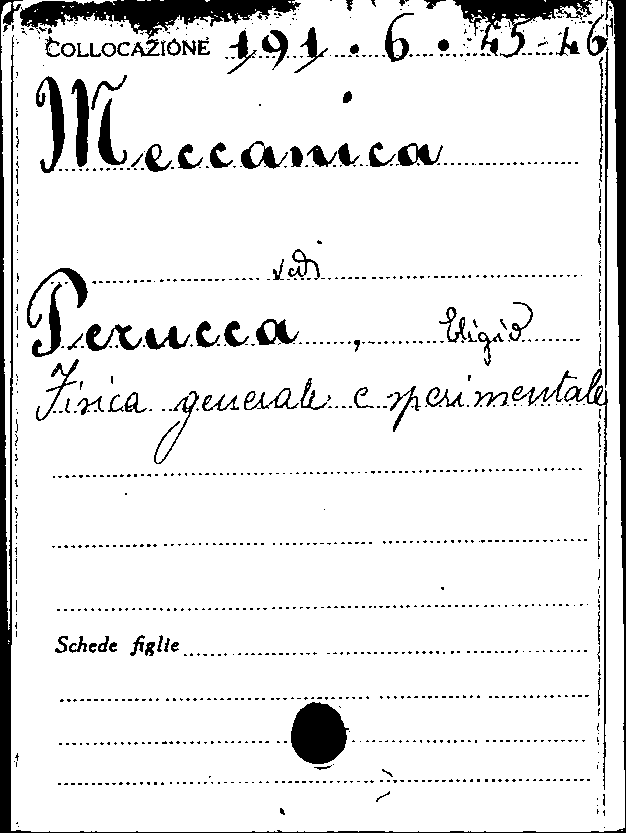 COLLOCAZIONE 191.6.45-46
Meccanica
vedi
Perucca, Eligio
Fisica generale e sperimentale
Schede figlie